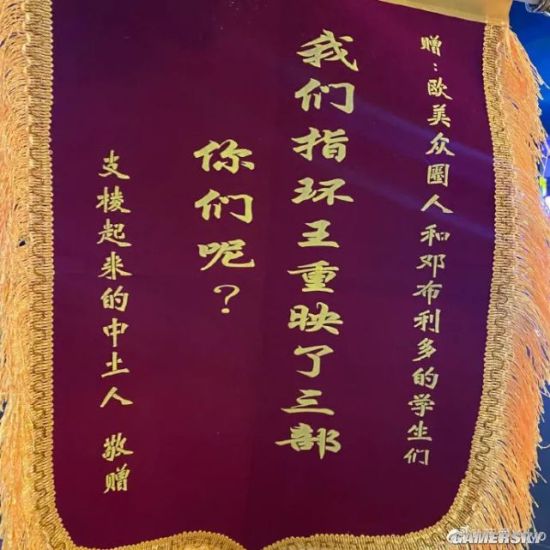 赠：欧美众圈人和邓布利多的学生们
我们指环王重映了三部
你们呢？
支棱起来的中土人 敬赠
GAMERSKY